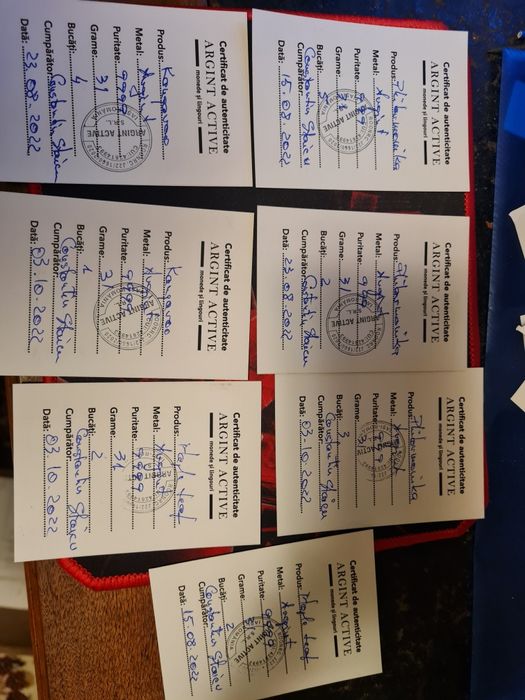 Certificat de autenticitate
ARGINT ACTIVE
monede și lingouri
Produs: Kangaroo
Metal: Argint
Puritate: 9999
Grame: 31
Bucăți: 4
Cumpărător: Constantin
Dată: 22.08.2022
Certificat de autenticitate
ARGINT ACTIVE
monede și lingouri
Produs: Filarmonica
Metal: Argint
Puritate:
Grame: 31
Bucăți:
Cumpărător:
Constantin
Dată: 15.08.2022
Certificat de autenticitate
ARGINT ACTIVE
monede și lingouri
Produs: Kangaroo
Metal: Argint
Puritate: 9999
Grame: 31
Bucăți: 1
Cumpărător:
Constantin
Dată: 03.10.2022
Certificat de autenticitate
ARGINT ACTIVE
monede și lingouri
Produs: Filarmonica
Metal: Argint
Puritate:
Grame: 31
Bucăți: 2
Cumpărător:
Dată: 23.08.2022
Certificat de autenticitate
ARGINT ACTIVE
monede și lingouri
Produs: Maple Leaf
Metal: Argint
Puritate: 9999
Grame: 31
Bucăți: 2
Cumpărător:
Constantin
Dată: 03.10.2022
Certificat de autenticitate
ARGINT ACTIVE
monede și lingouri
Produs: Filarmonica
Metal: Argint
Puritate:
Grame:
Bucăți: 3
Cumpărător:
Constantin
Dată: 03.10.2022
Certificat de autenticitate
ARGINT ACTIVE
monede și lingouri
Produs: Maple Leaf
Metal: Argint
Puritate: 9999
Grame: 31
Bucăți: 2
Cumpărător:
Constantin
Dată: 15.08.2022